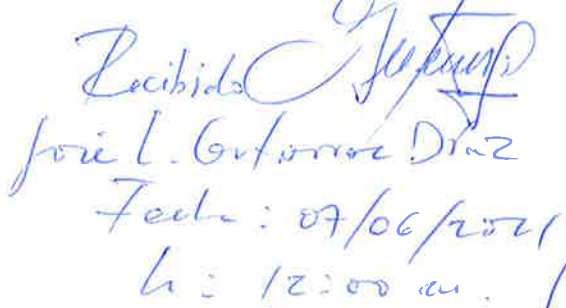 Recibido
José L. Gutierrez Díaz
Fecha: 07/06/2021
h: 12:00 am